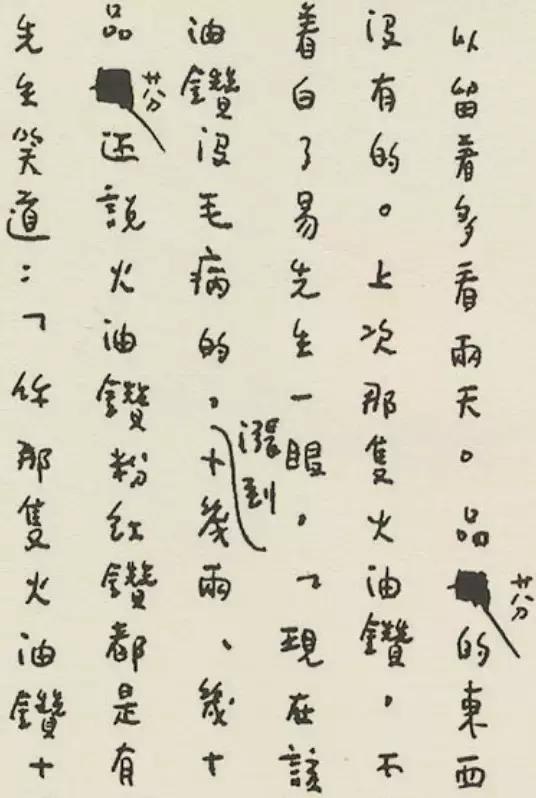 以留着多看兩天。品芬的東西
没有的。上次那隻火油鑽，不
着白了易先生一眼。「現在該
油鑽没毛病的，漲到十幾兩、幾十
品芬还說火油鑽粉紅鑽都是有
先生笑道：「你那隻火油鑽十